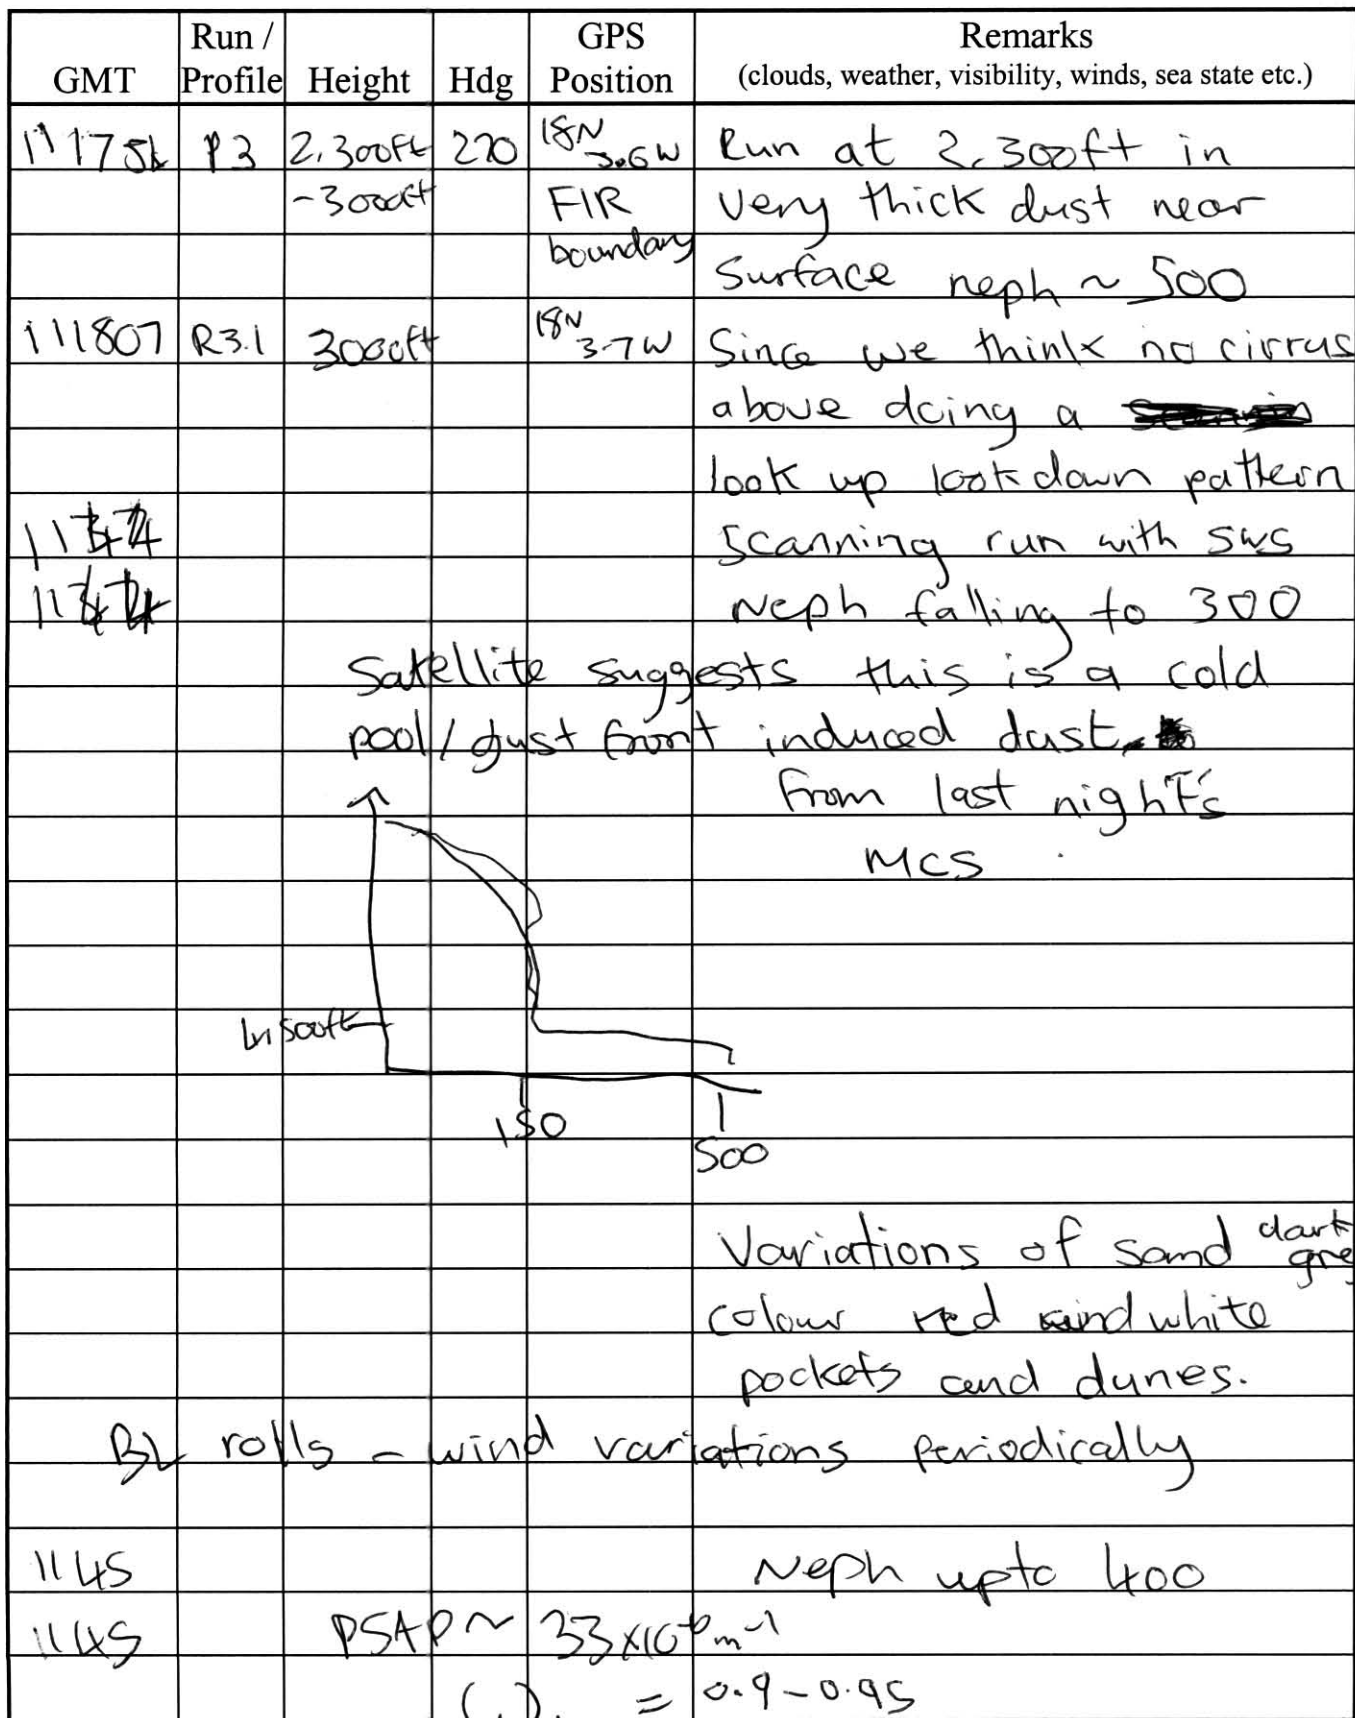 GMT Run / Profile Height Hdg GPS Position Remarks
(clouds, weather, visibility, winds, sea state etc.)
P3 2,300ft 270 18N 3.6W Run at 2,300ft in
-3000ft FIR very thick dust near
boundary
Surface neph ~ 500
111807 R3.1 3000ft 18N 3.7W Since we think no cirrus
above doing a
look up look down pattern
scanning run with SWS
Neph falling to 300
Satellite suggests this is a cold
pool/gust front induced dust
from last night's
MCS
500ft
150
500
Variations of sand dark
colour red and white
pockets and dunes.
BL rolls - wind variations periodically
1145 Neph upto 400
1145 PSAP ~ 33x10⁻⁶m⁻¹
= 0.9-0.95